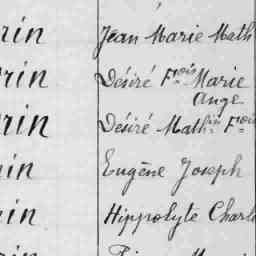 rin Jean Marie Math
rin Désiré Fois Marie
Ange
rin Désiré Mathin Fois
in Eugène Joseph
in Hippolyte Charl